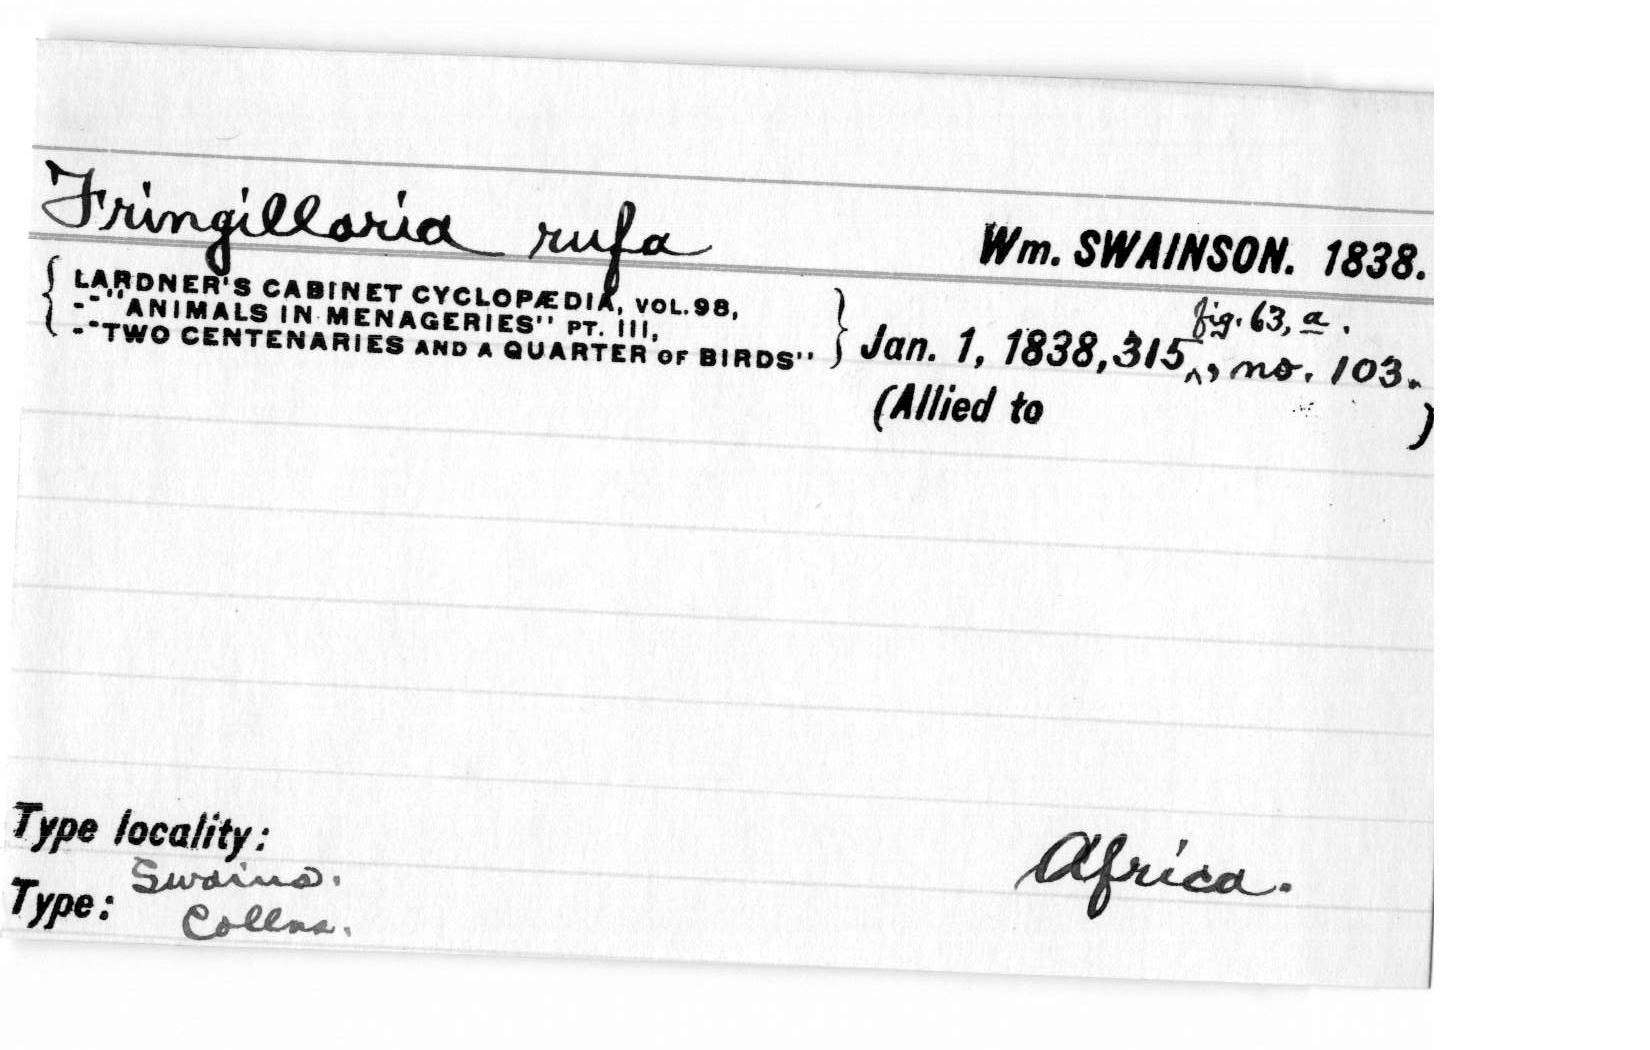 Fringillaria rufa
Wm. SWAINSON. 1838.
{ LARDNER'S CABINET CYCLOPÆDIA, VOL. 98,
--"ANIMALS IN MENAGERIES" PT. III,
--"TWO CENTENARIES AND A QUARTER OF BIRDS" }
fig. 63, a.
Jan. 1, 1838, 315^, no. 103.
(Allied to )
Type locality:
Africa.
Swains.
Type: Collns.